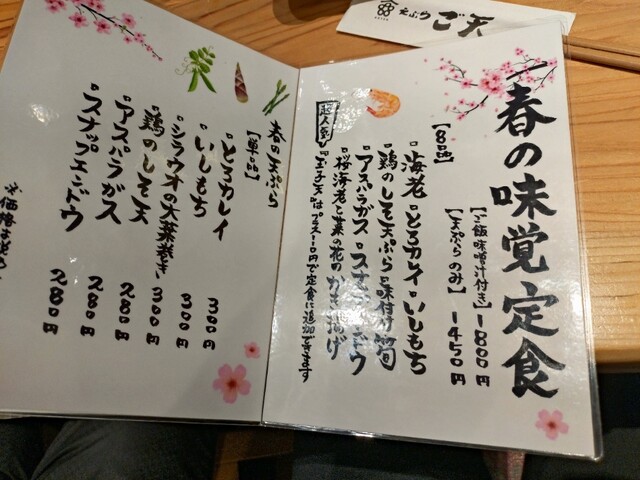 天ぷら ご天
春の味覚定食
【ご飯味噌汁付き】 1800円
【天ぷらのみ】 1450円
【8品】
・海老・とろカレイ・いしもち
・鶏のしそ天ぷら・味付け筍
・アスパラガス・スナップエンドウ
・桜海老と菜の花のかき揚げ
超人気!
『玉子天』はプラス110円で定食に追加できます
春の天ぷら
【単品】
・とろカレイ 300円
・いしもち 300円
・シラウオの大葉巻き 300円
・鶏のしそ天 300円
・アスパラガス 280円
・スナップエンドウ 280円
280円
※価格は